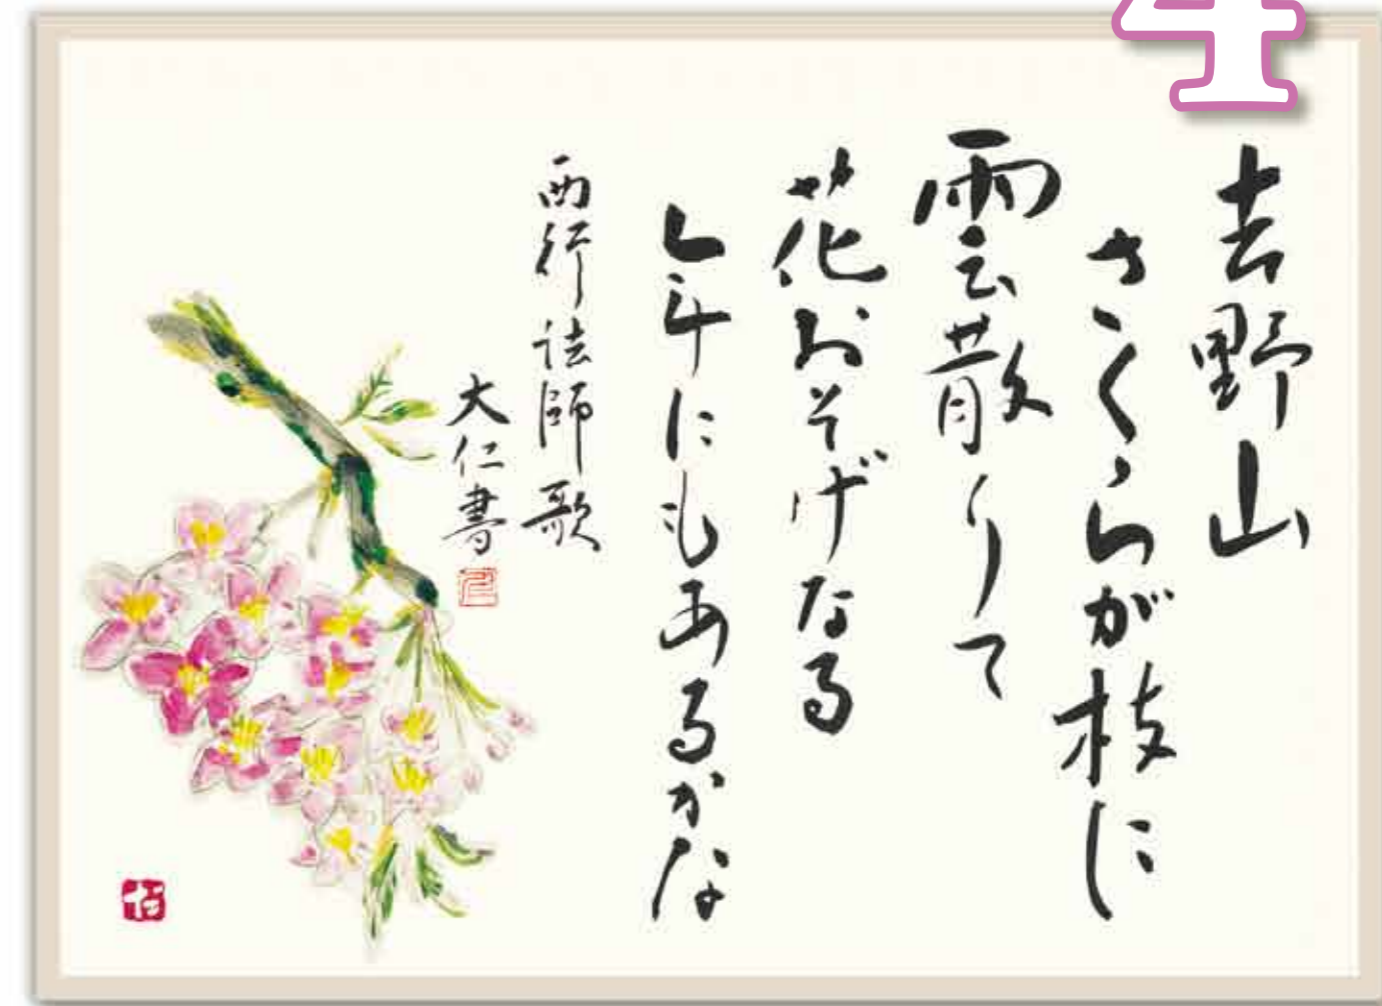 4
吉野山
さくらが枝に
雲散りて
花おそげなる
年にもあるかな
西行法師歌
大仁書
仁